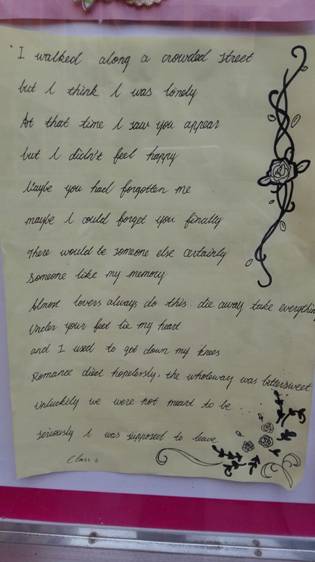 I walked along a crowded street
but I think I was lonely
At that time I saw you appear
but I didn't feel happy
Maybe you had forgotten me
maybe I could forget you finally
There would be someone else certainly
Someone like my memory
Almost lovers always do this . die away take everything
Under your feet lie my heart
and I used to got down my knees
Romance died hopelessly, the wholeway was bittersweet
Unluckily we were not meant to be
seriously I was supposed to leave